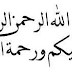 الله الرحمن الر
يكم ورحمة ا